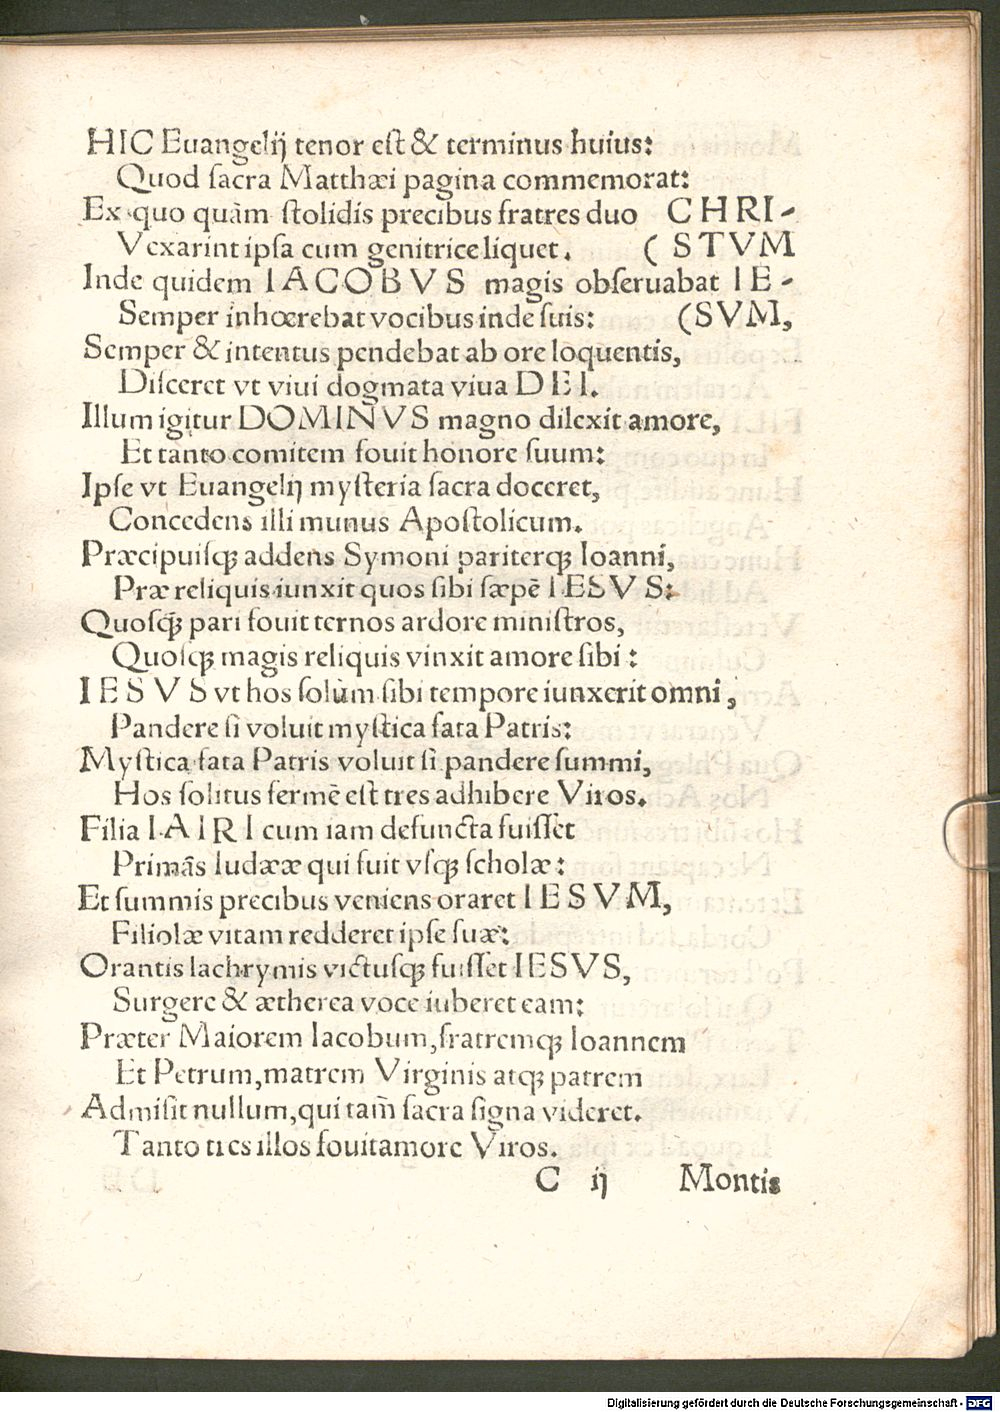 HIC Euangelij tenor est & terminus huius:
Quod sacra Matthæi pagina commemorat:
Ex quo quàm stolidis precibus fratres duo CHRI-
Vexarint ipsa cum genitrice liquet. (STVM
Inde quidem IACOBVS magis obseruabat IE-
Semper inhœrebat vocibus inde suis: (SVM,
Semper & intentus pendebat ab ore loquentis,
Disceret vt viui dogmata viua DEI.
Illum igitur DOMINVS magno dilexit amore,
Et tanto comitem fouit honore suum:
Ipse vt Euangelij mysteria sacra doceret,
Concedens illi munus Apostolicum.
Præcipuisqȝ addens Symoni pariterqȝ Ioanni,
Præ reliquis iunxit quos sibi sæpē IESVS:
Quosqȝ pari fouit ternos ardore ministros,
Quosqȝ magis reliquis vinxit amore sibi:
IESVS vt hos solùm sibi tempore iunxerit omni,
Pandere si voluit mystica fata Patris:
Mystica fata Patris voluit si pandere summi,
Hos solitus fermē est tres adhibere Viros.
Filia IAIRI cum iam defuncta fuisset
Primãs Iudææ qui fuit vsqȝ scholæ:
Et summis precibus veniens oraret IESVM,
Filiolæ vitam redderet ipse suæ:
Orantis lachrymis victusqȝ fuisset IESVS,
Surgere & ætherea voce iuberet eam:
Præter Maiorem Iacobum, fratremqȝ Ioannem
Et Petrum, matrem Virginis atqȝ patrem
Admisit nullum, qui tam̃ sacra signa videret.
Tanto tres illos fouit amore Viros.
C ij Montis
Digitalisierung gefördert durch die Deutsche Forschungsgemeinschaft - DFG